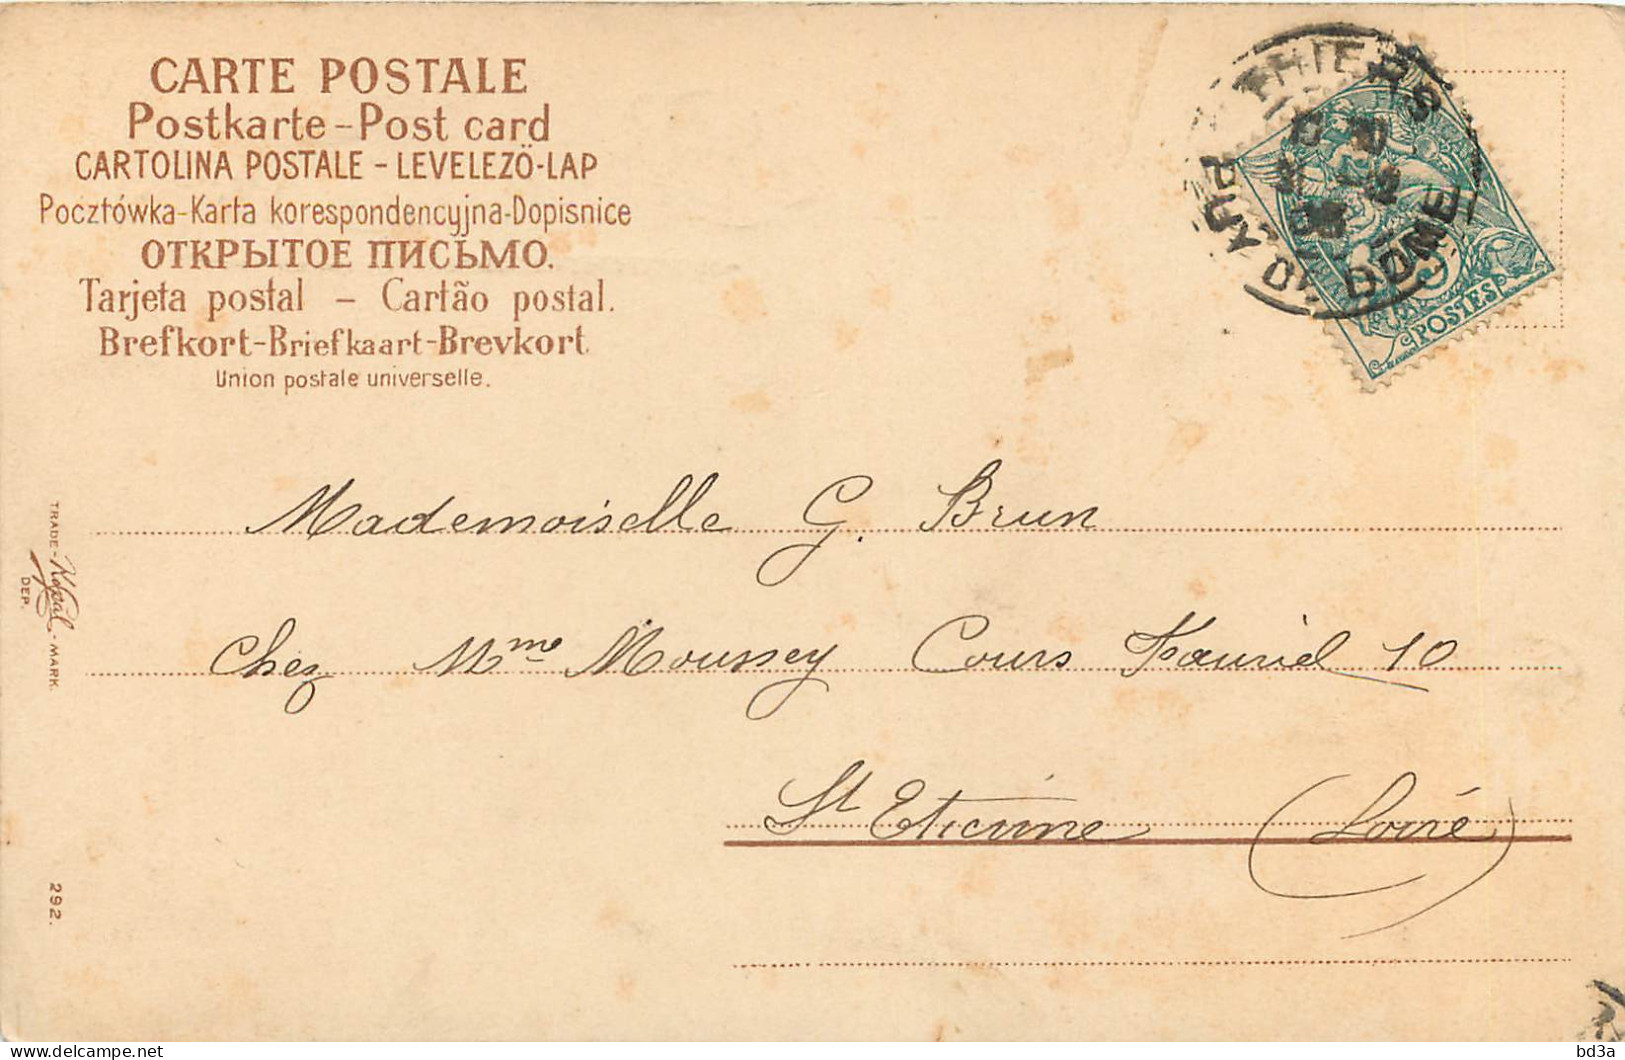 CARTE POSTALE
Postkarte - Post card
CARTOLINA POSTALE - LEVELEZÖ-LAP
Pocztówka - Karta korespondencyjna - Dopisnice
ОТКРЫТОЕ ПИСЬМО.
Tarjeta postal - Cartão postal.
Brefkort - Briefkaart - Brevkort.
Union postale universelle.
THIERS
PUY DE DOME
5
POSTES
Mademoiselle G. Brun
Chez Mme Moussey Cours Fauriel 10
St Etienne (Loire)
TRADE - - MARK.
DEP.
292.
delcampe.net
bd3a